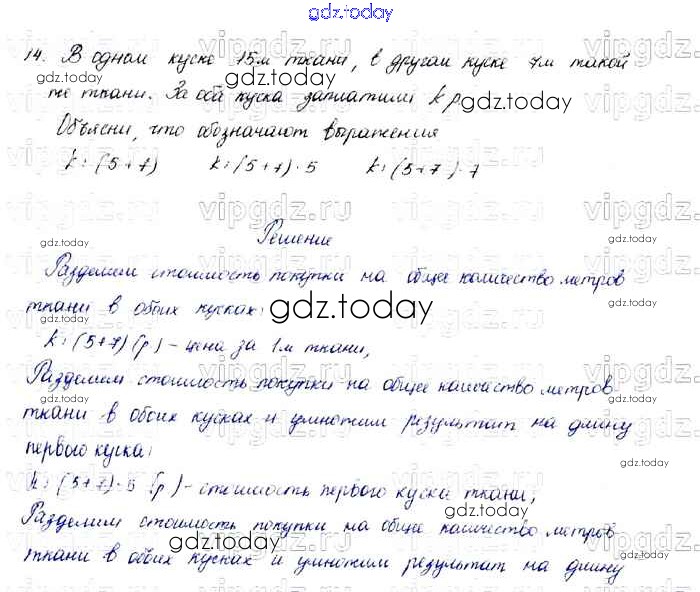 gdz.today
14. В одном куске 15м ткани, в другом куске 7м такой
же ткани. За оба куска заплатили k р.
gdz.today
gdz.today
Объясни, что обозначают выражения
k:(5+7) k:(5+7)·5 k:(5+7)·7
gdz.today
vipgdz.ru
Решение
gdz.today
gdz.today
Разделим стоимость покупки на общее количество метров
ткани в обоих кусках:
gdz.today
k:(5+7) (р) - цена за 1м ткани,
gdz.today
Разделим стоимость покупки на общее количество метров
ткани в обоих кусках и умножим результат на длину
gdz.today
первого куска:
gdz.today
k:(5+7)·5 (р) - стоимость первого куска ткани;
Разделим стоимость покупки на общее количество метров
gdz.today
ткани в обоих кусках и умножим результат на длину
gdz.today